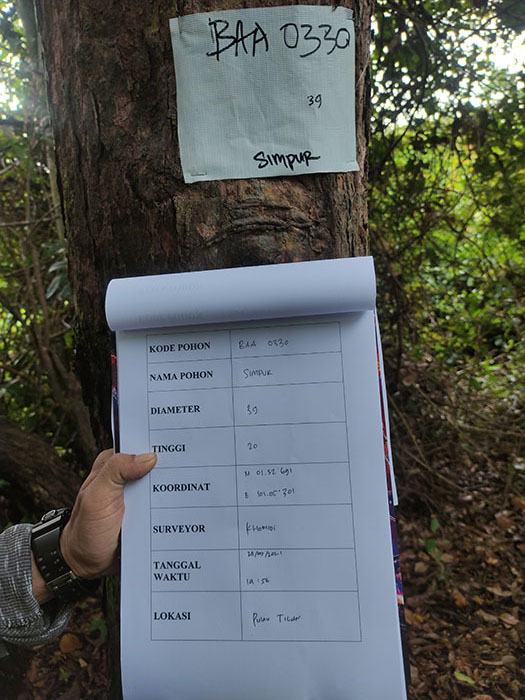 BAA 0330
39
SIMPUR
KODE POHON BAA 0330
NAMA POHON SIMPUR
DIAMETER 39
TINGGI 20
KOORDINAT N 01.32 691
E 101.05 301
SURVEYOR
TANGGAL
WAKTU 14:56
LOKASI PULAU